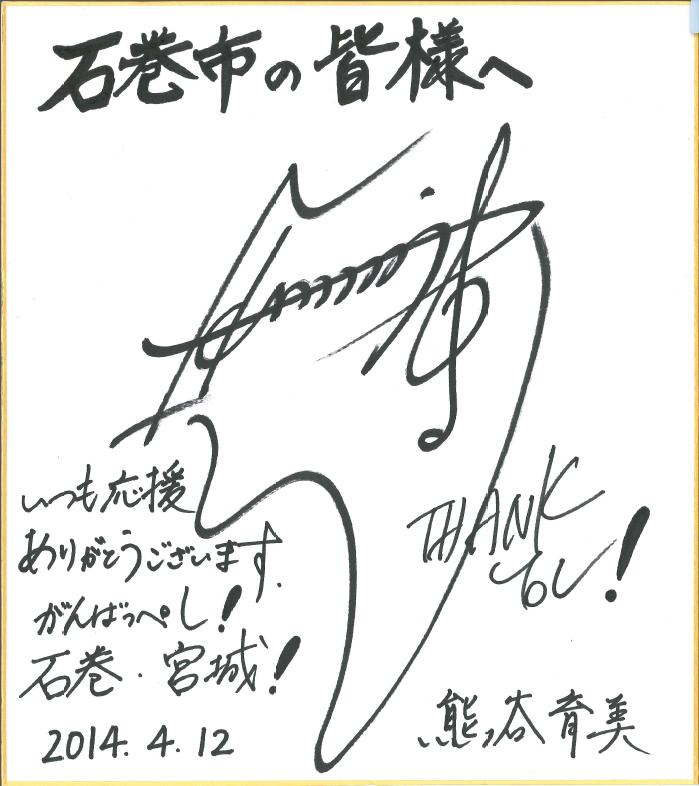 石巻市の皆様へ
いつも応援
ありがとうございます.
がんばっぺし!
石巻・宮城!
2014.4.12
THANK
you!
熊谷育美